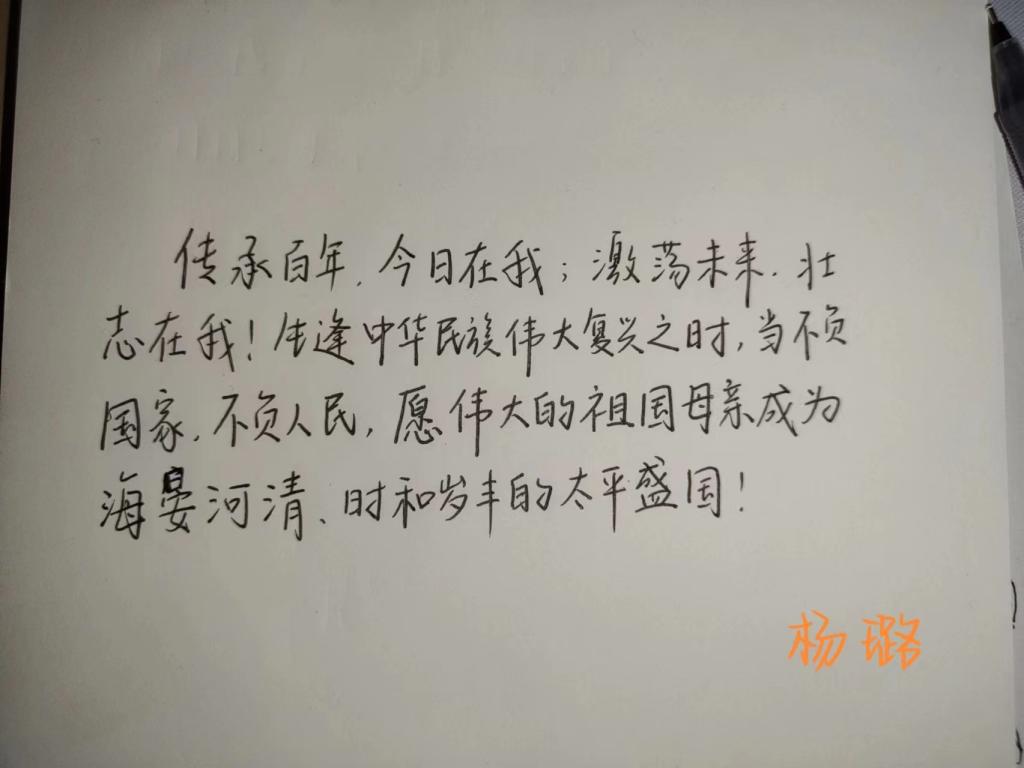 传承百年,今日在我;激荡未来.壮
志在我!生逢中华民族伟大复兴之时,当不负
国家,不负人民,愿伟大的祖国母亲成为
海晏河清、时和岁丰的太平盛国!
杨璐